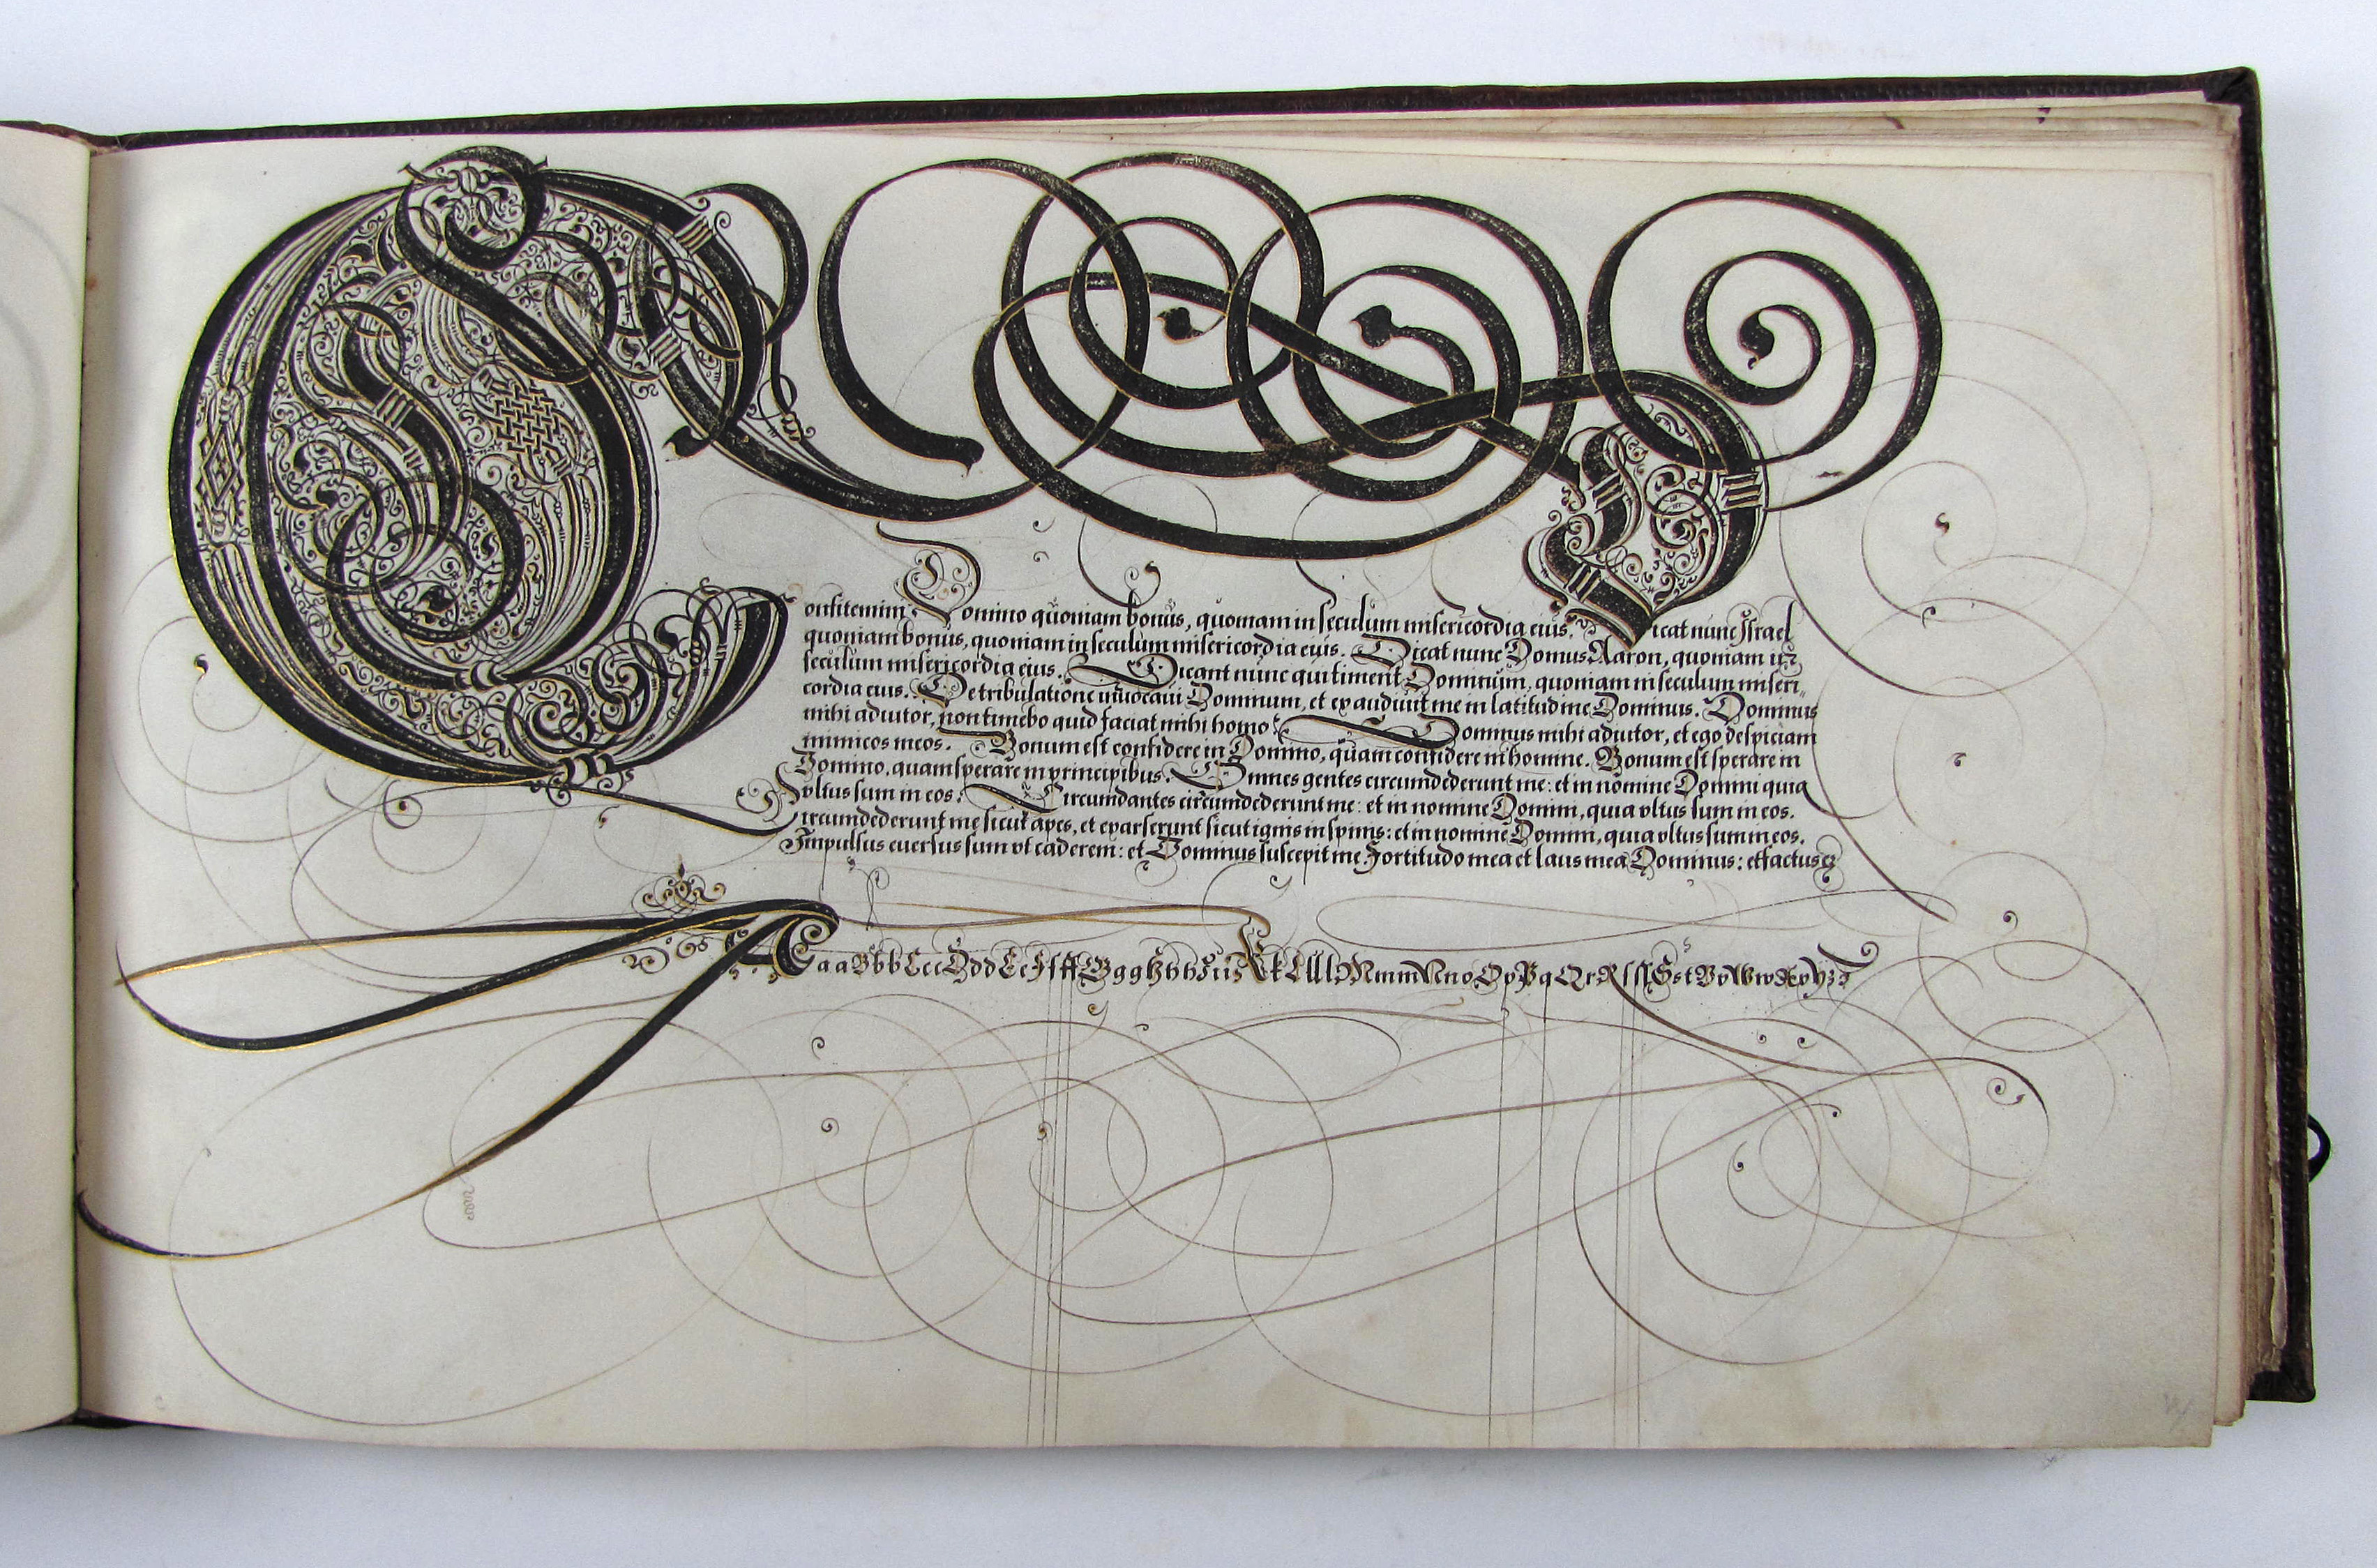 Confitemini Domino quoniam bonus, quoniam in seculum misericordia eius. Dicat nunc Israel
quoniam bonus, quoniam in seculum misericordia eius. Dicat nunc Domus Aaron, quoniam in
seculum misericordia eius. Dicant nunc qui timent Dominum, quoniam in seculum miseri„
cordia eius. De tribulatione inuocaui Dominum, et exaudiuit me in latitudine Dominus. Dominus
mihi adiutor, non timebo quid faciat mihi homo. Dominus mihi adiutor, et ego despiciam
inimicos meos. Bonum est confidere in Domino, quam confidere in homine. Bonum est sperare in
Domino, quam sperare in principibus. Omnes gentes circumdederunt me: et in nomine Domini quia
vltus sum in eos. Circumdantes circumdederunt me: et in nomine Domini, quia vltus sum in eos.
Circumdederunt me sicut apes, et exarserunt sicut ignis in spinis: et in nomine Domini, quia vltus sum in eos.
Impulsus euersus sum vt caderem: et Dominus suscepit me. Fortitudo mea et laus mea Dominus: et factus
A a a B b b C c c D d d E e F f ff G g g H h h I i i K k L l l M m m N n o O p P q Q r R ſ ſſ S s t V v W w x y Y z